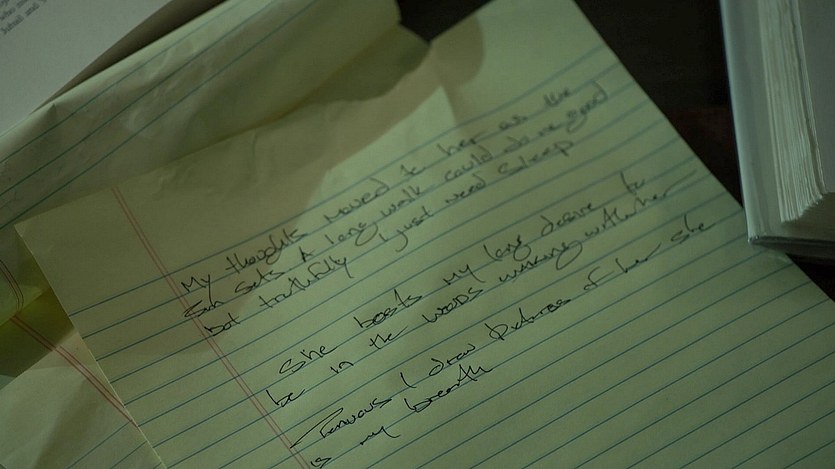 who
Jekell and
My thoughts moved to her as the
sun sets. A long walk could do me good
but truthfully I just need sleep
She beats my long desire to
be in the woods walking with her
I draw pictures of her she
is my breath